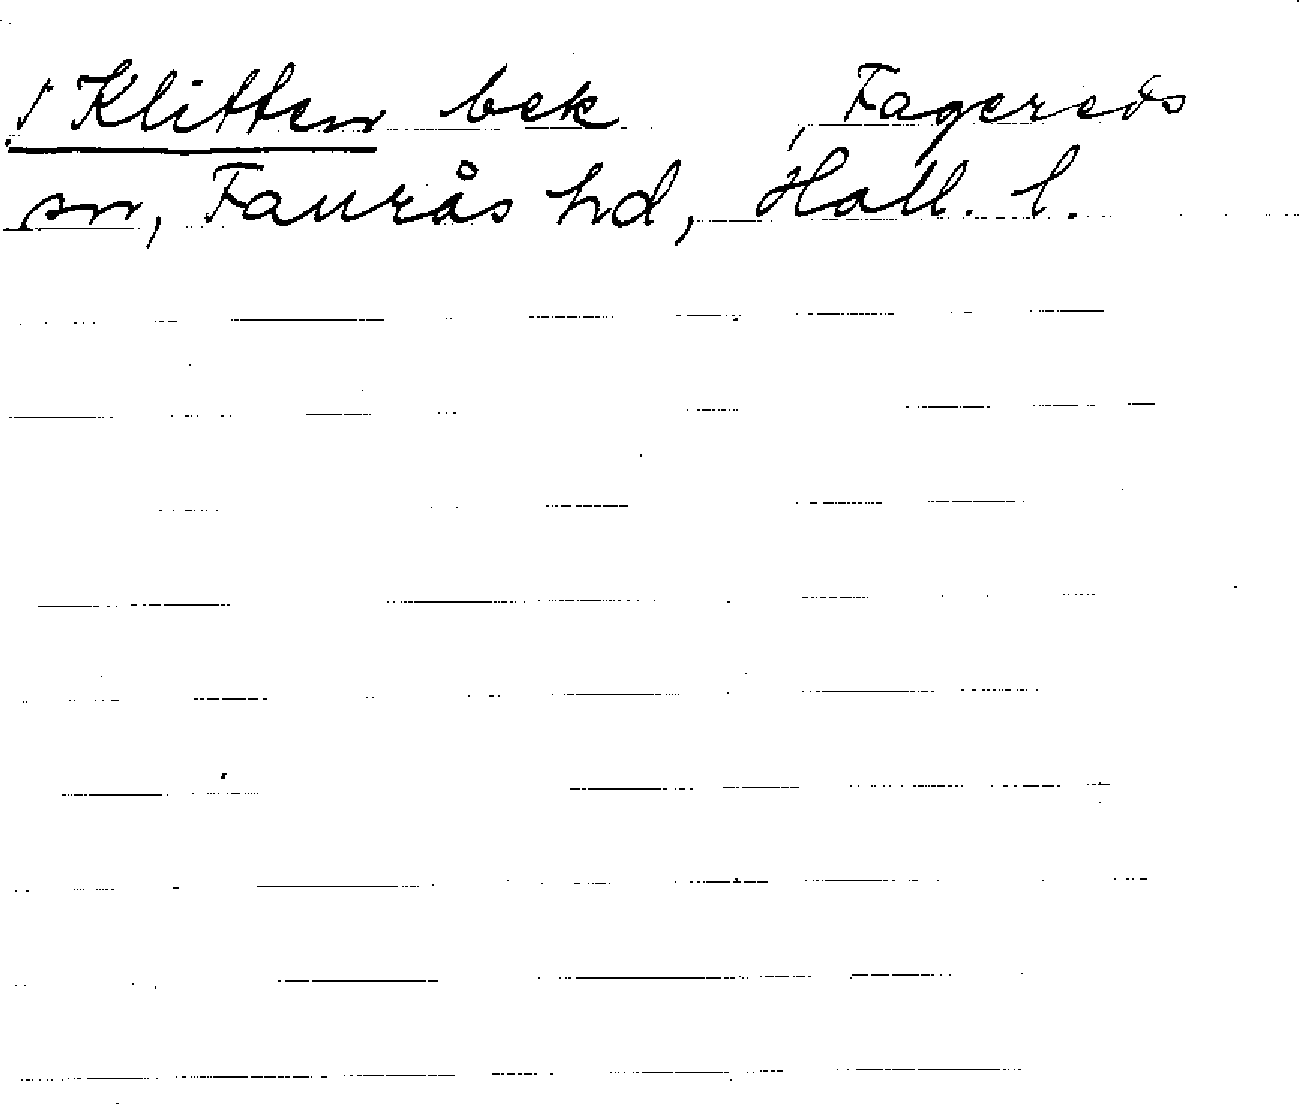 Klitten bek , Fagereds
sn, Faurås hd, Hall. l.